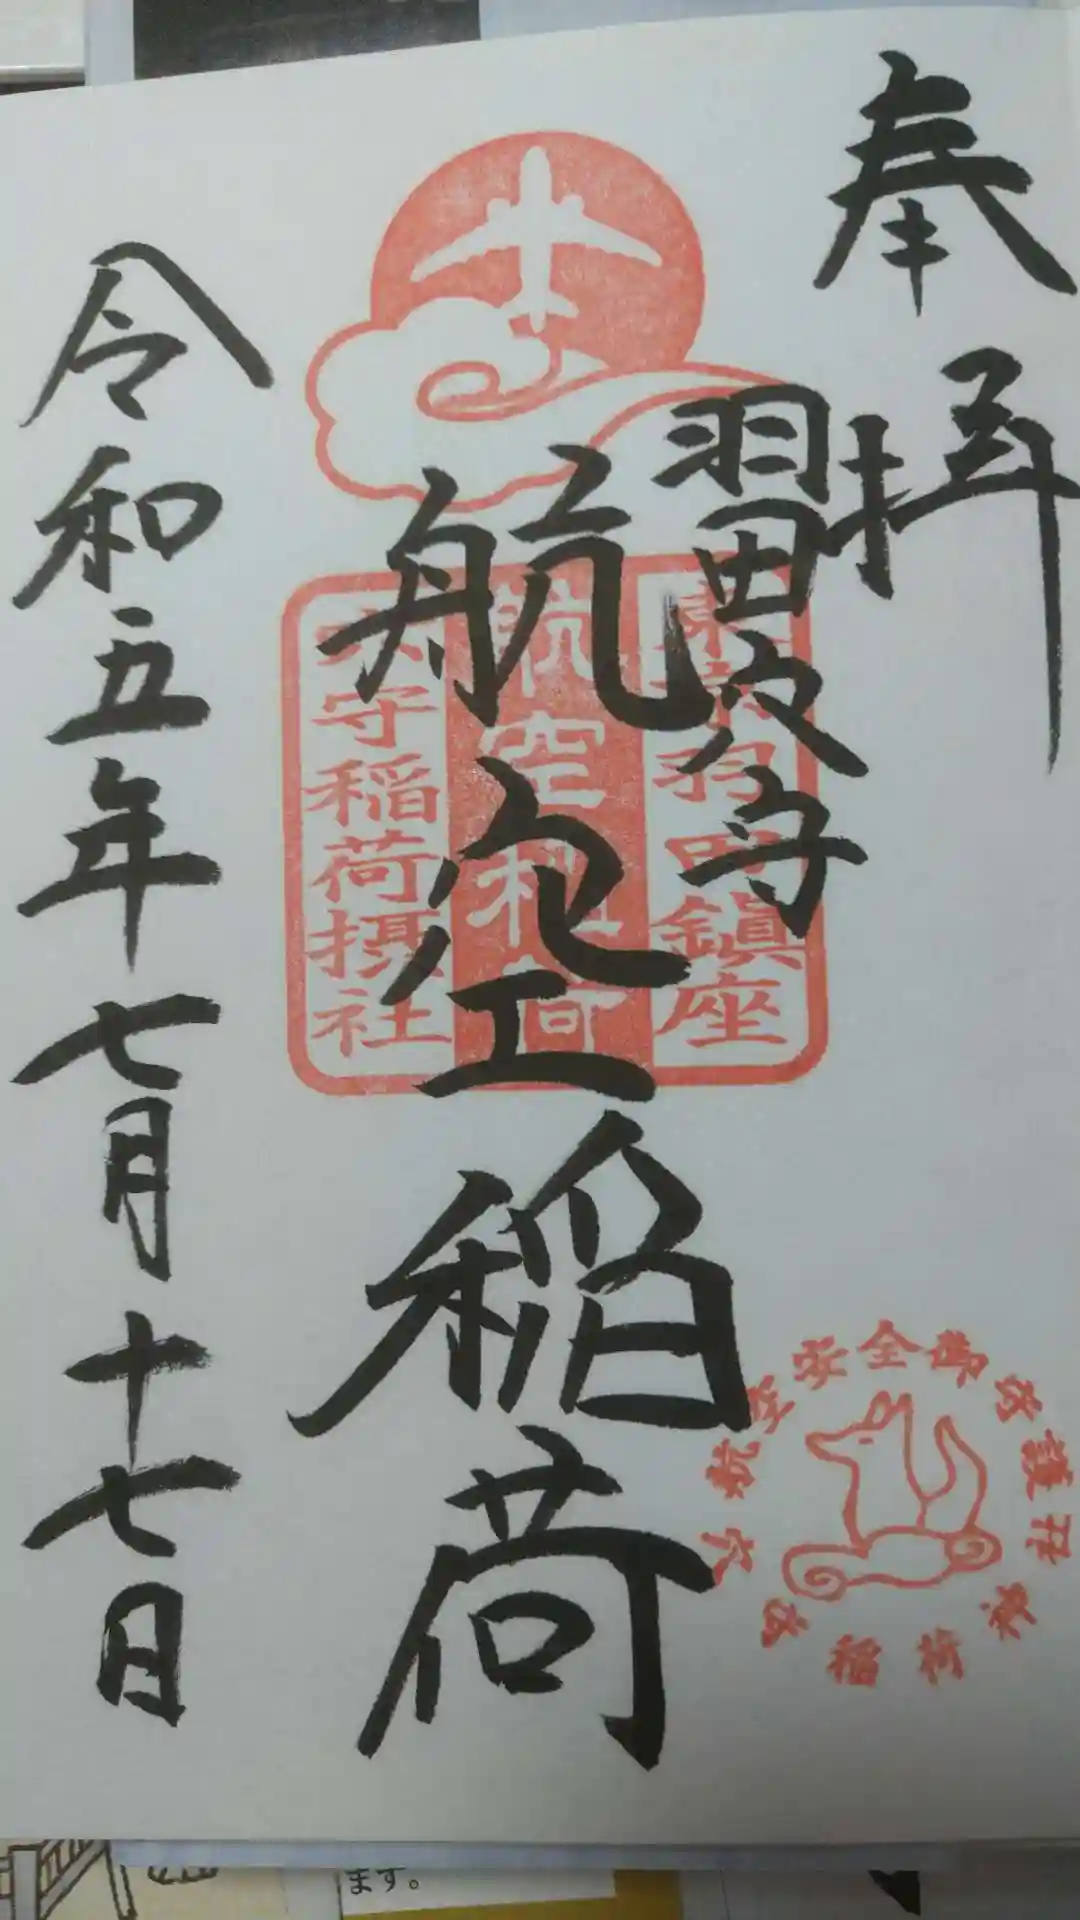 奉拝
羽田穴守
航空稲荷
令和五年七月十七日
東京羽田鎮座
航空稲荷
穴守稲荷摂社
航空安全御守護
穴守稲荷
ます。